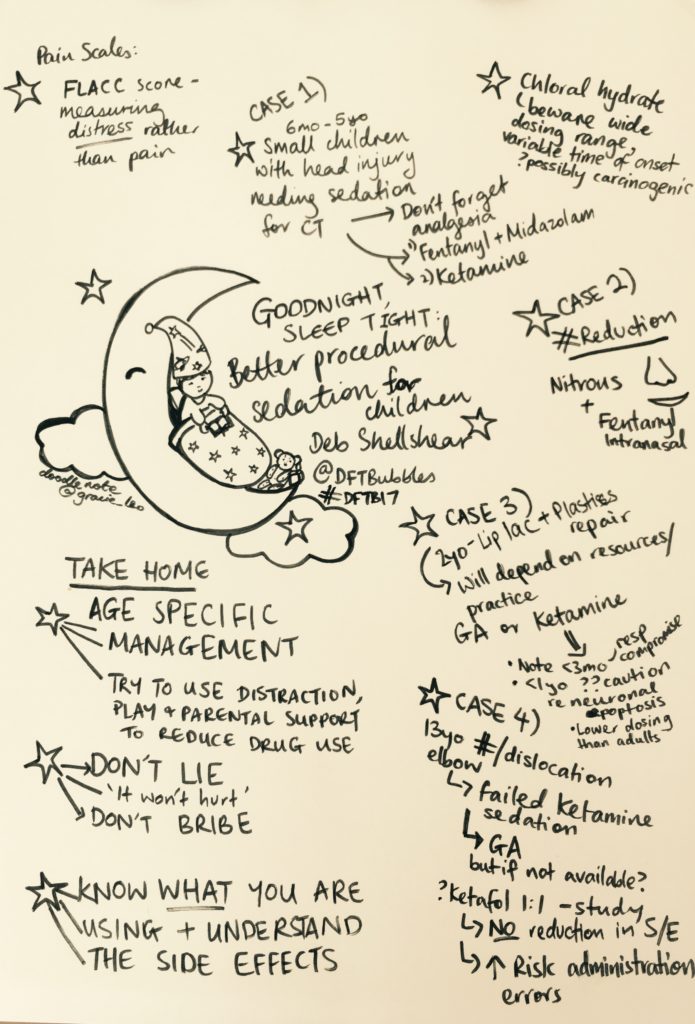 Pain Scales:
FLACC score -
measuring
distress rather
than pain
CASE 1)
6mo - 5yo
Small children
with head injury
needing sedation
for CT
Don't forget
analgesia
1) Fentanyl + Midazolam
2) Ketamine
Chloral hydrate
beware wide
dosing range,
variable time of onset
? possibly carcinogenic
GOODNIGHT,
SLEEP TIGHT:
Better procedural
sedation for
children
Deb Shellshear
@DFTBubbles
#DFTB17
doodle note
@gracie_leo
CASE 2)
#Reduction
Nitrous
+
Fentanyl
Intranasal
CASE 3)
2yo - Lip lac + Plastics
repair
will depend on resources/
practice
GA or Ketamine
• Note <3mo resp
compromise
• <1yo ?? caution
re neuronal
apoptosis
• Lower dosing
than adults
CASE 4)
13yo #/dislocation
elbow
failed Ketamine
sedation
GA
but if not available?
? Ketafol 1:1 - study
NO reduction in S/E
↑ Risk administration
errors
TAKE HOME
AGE SPECIFIC
MANAGEMENT
TRY TO USE DISTRACTION,
PLAY & PARENTAL SUPPORT
TO REDUCE DRUG USE
DON'T LIE
'It won't hurt'
DON'T BRIBE
KNOW WHAT YOU ARE
USING + UNDERSTAND
THE SIDE EFFECTS